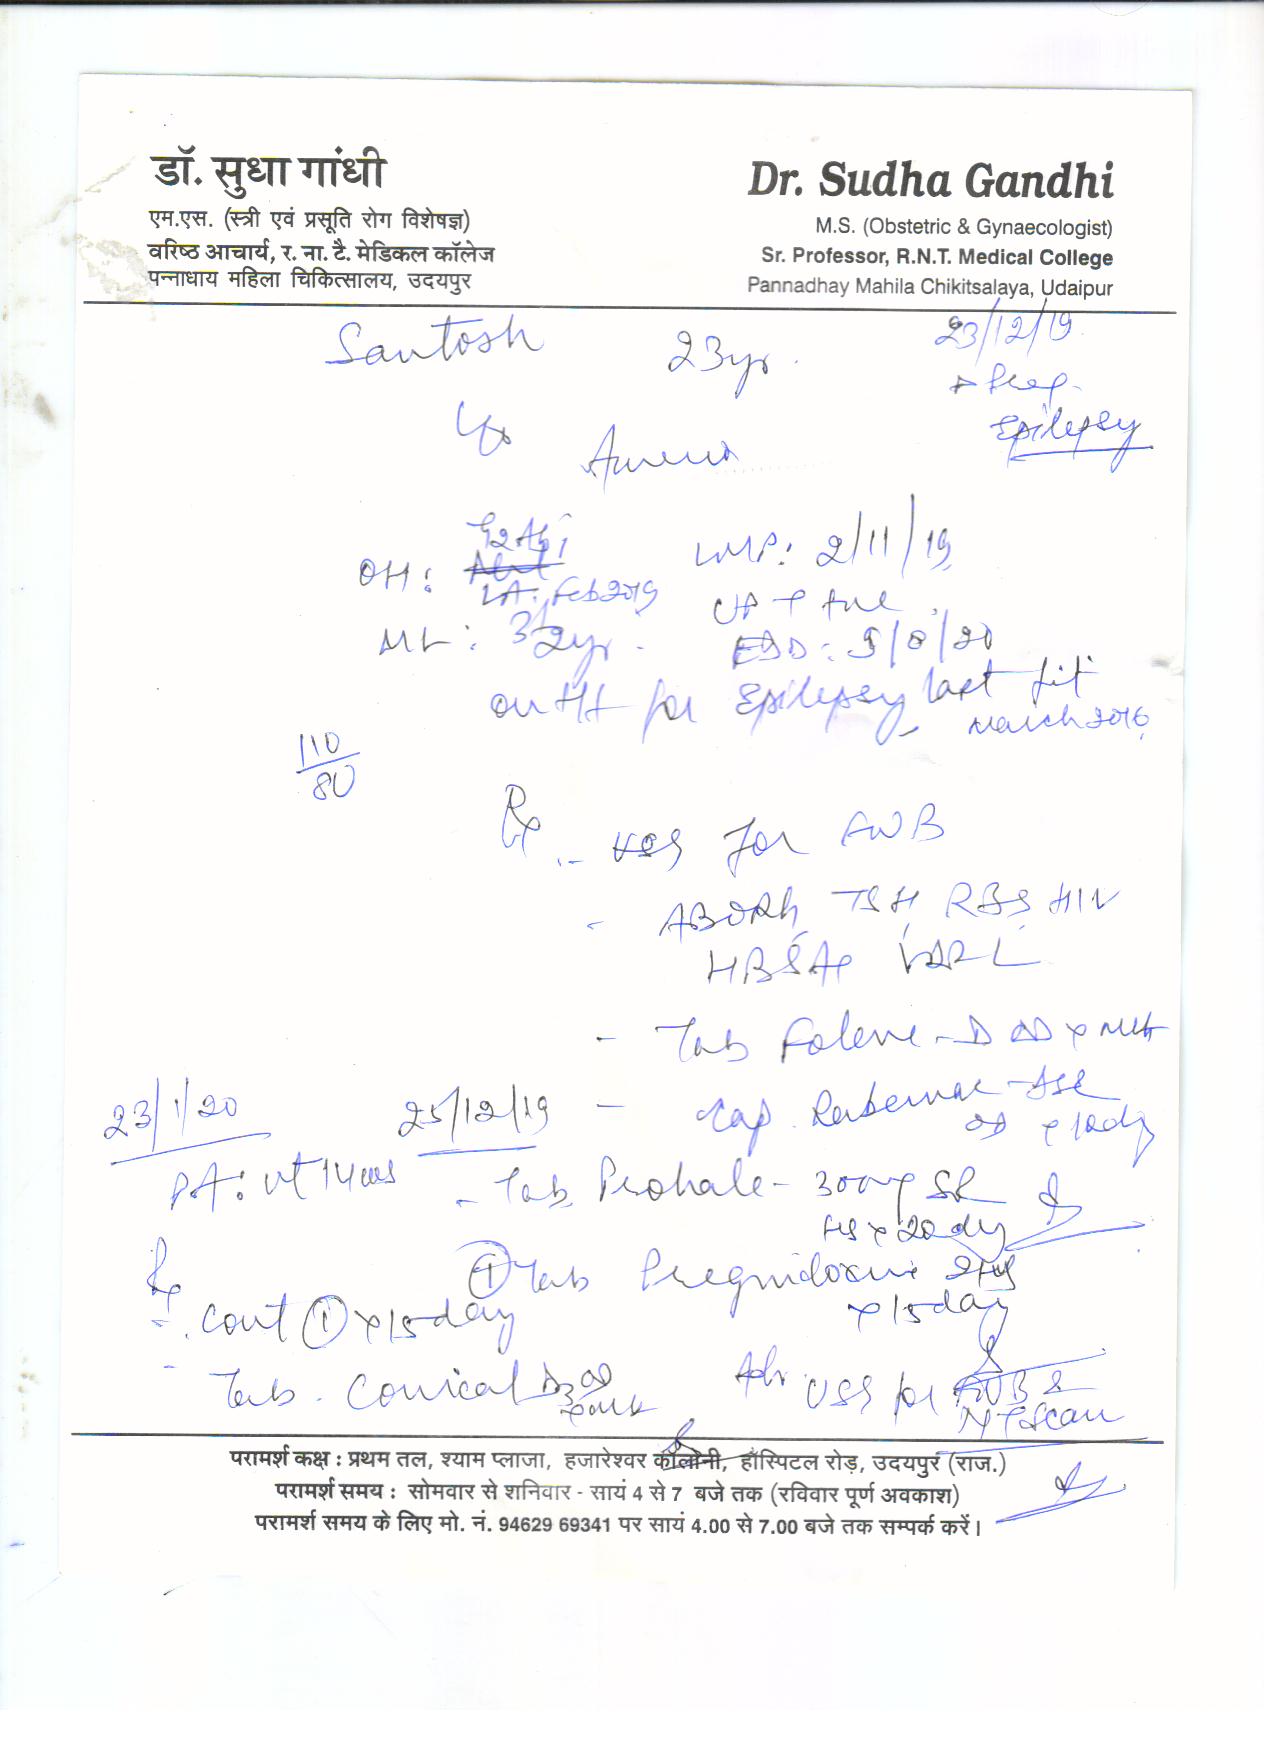 डॉ. सुधा गांधी
एम.एस. (स्त्री एवं प्रसूति रोग विशेषज्ञ)
वरिष्ठ आचार्य, र. ना. टै. मेडिकल कॉलेज
पन्नाधाय महिला चिकित्सालय, उदयपुर
Dr. Sudha Gandhi
M.S. (Obstetric & Gynaecologist)
Sr. Professor, R.N.T. Medical College
Pannadhay Mahila Chikitsalaya, Udaipur
Santosh 23yr. 23/12/19
Preg.
Epilepsy
OH: LMP: 2/11/19
LA: Feb 2019
UPT +ve
ML: 3 1/2yr. EDD: 9/8/20
on ttt for Epilepsy last fit
March 2016
110/80
Rx
- USG for FWB
- ABORh, TSH, RBS, HIV
HBSAg VDRL
- Tab
- Cap.
OD x 10dy
23/1/20
PA: Ut 14wks
Rx
- Cont ① x 15day
- Tab.
25/12/19
- Tab 300mg SR
HS x 20dy
① Tab Pregnidoxin 2HS
x 15day
Adv. USG for FWB &
NT Scan
परामर्श कक्ष : प्रथम तल, श्याम प्लाजा, हजारेश्वर कॉलोनी, हॉस्पिटल रोड़, उदयपुर (राज.)
परामर्श समय : सोमवार से शनिवार - सायं 4 से 7 बजे तक (रविवार पूर्ण अवकाश)
परामर्श समय के लिए मो. नं. 94629 69341 पर सायं 4.00 से 7.00 बजे तक सम्पर्क करें।